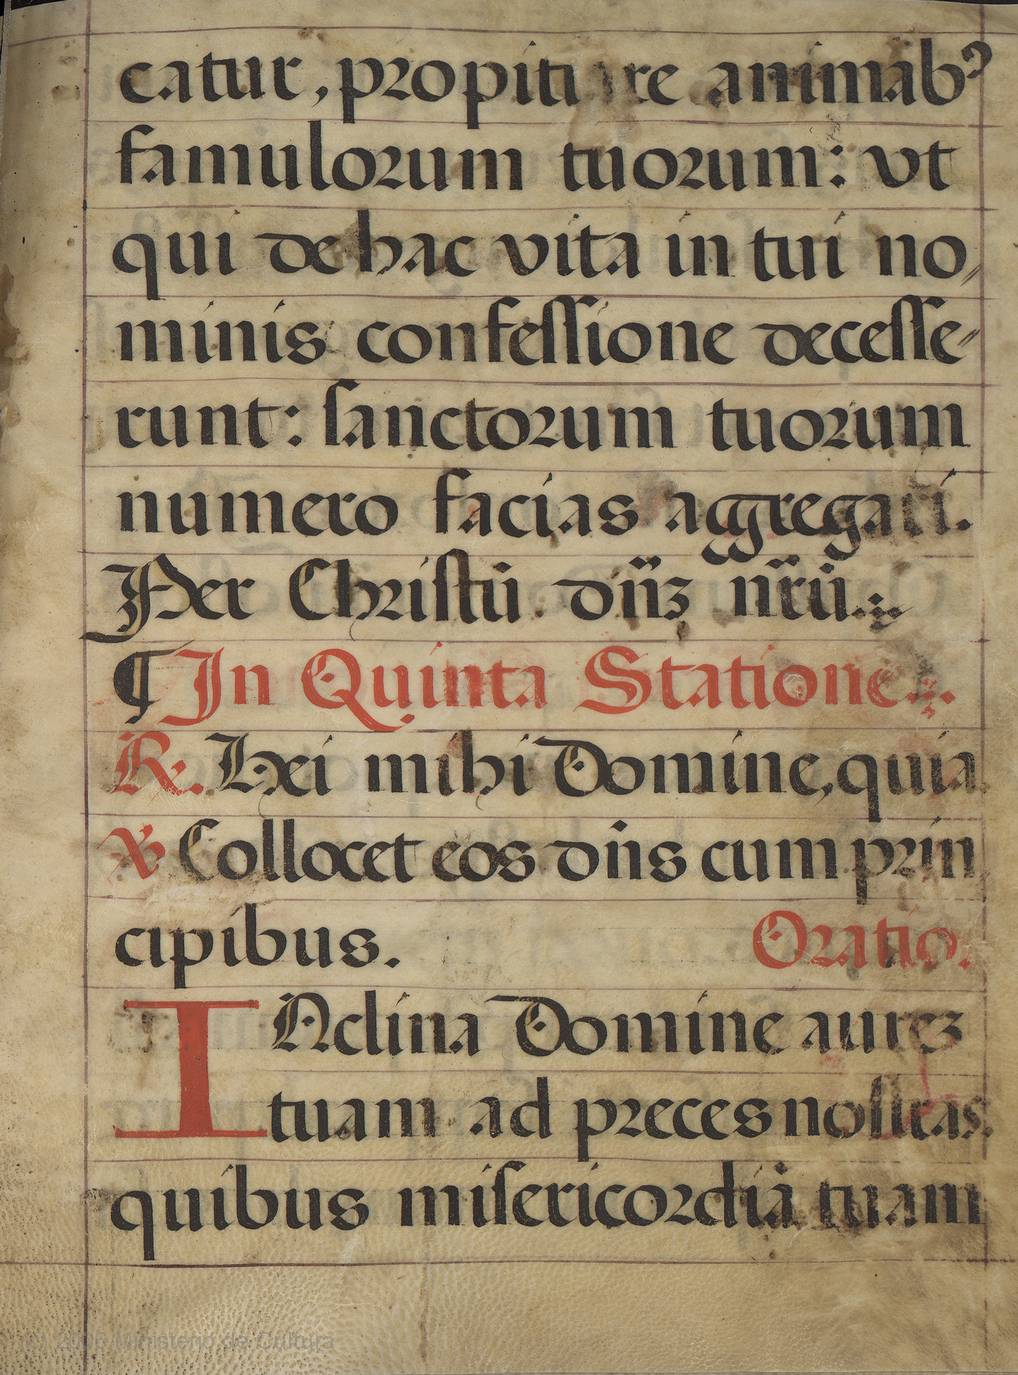 catur, propitiare animabꝰ
famulorum tuorum: vt
qui de hac vita in tui no,
minis confessione decesse-
runt: sanctorum tuorum
numero facias aggregari.
Per Christū dn̄ꝫ nr̄ū.
¶ In Quinta Statione.
℟. Hei mihi Domine, quia
℣ Collocet eos dn̄s cum prin
cipibus. Oratio.
INclina Domine aureꝫ
tuam ad preces nostras.
quibus misericordiā tuam
Ministerio de Cultura